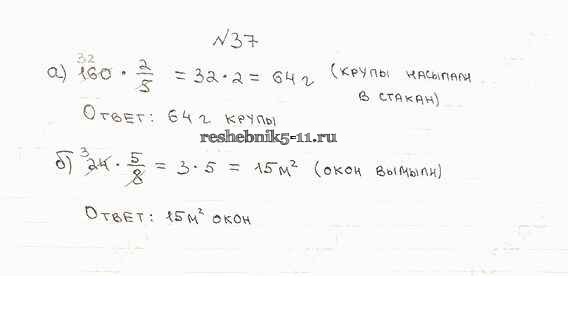 №37
а) 160 32 · 2/5 = 32 · 2 = 64 г (крупы насыпали
в стакан)
Ответ: 64 г крупы
reshebnik5-11.ru
б) 24 3 · 5/8 = 3 · 5 = 15 м² (окон вымыли)
Ответ: 15 м² окон